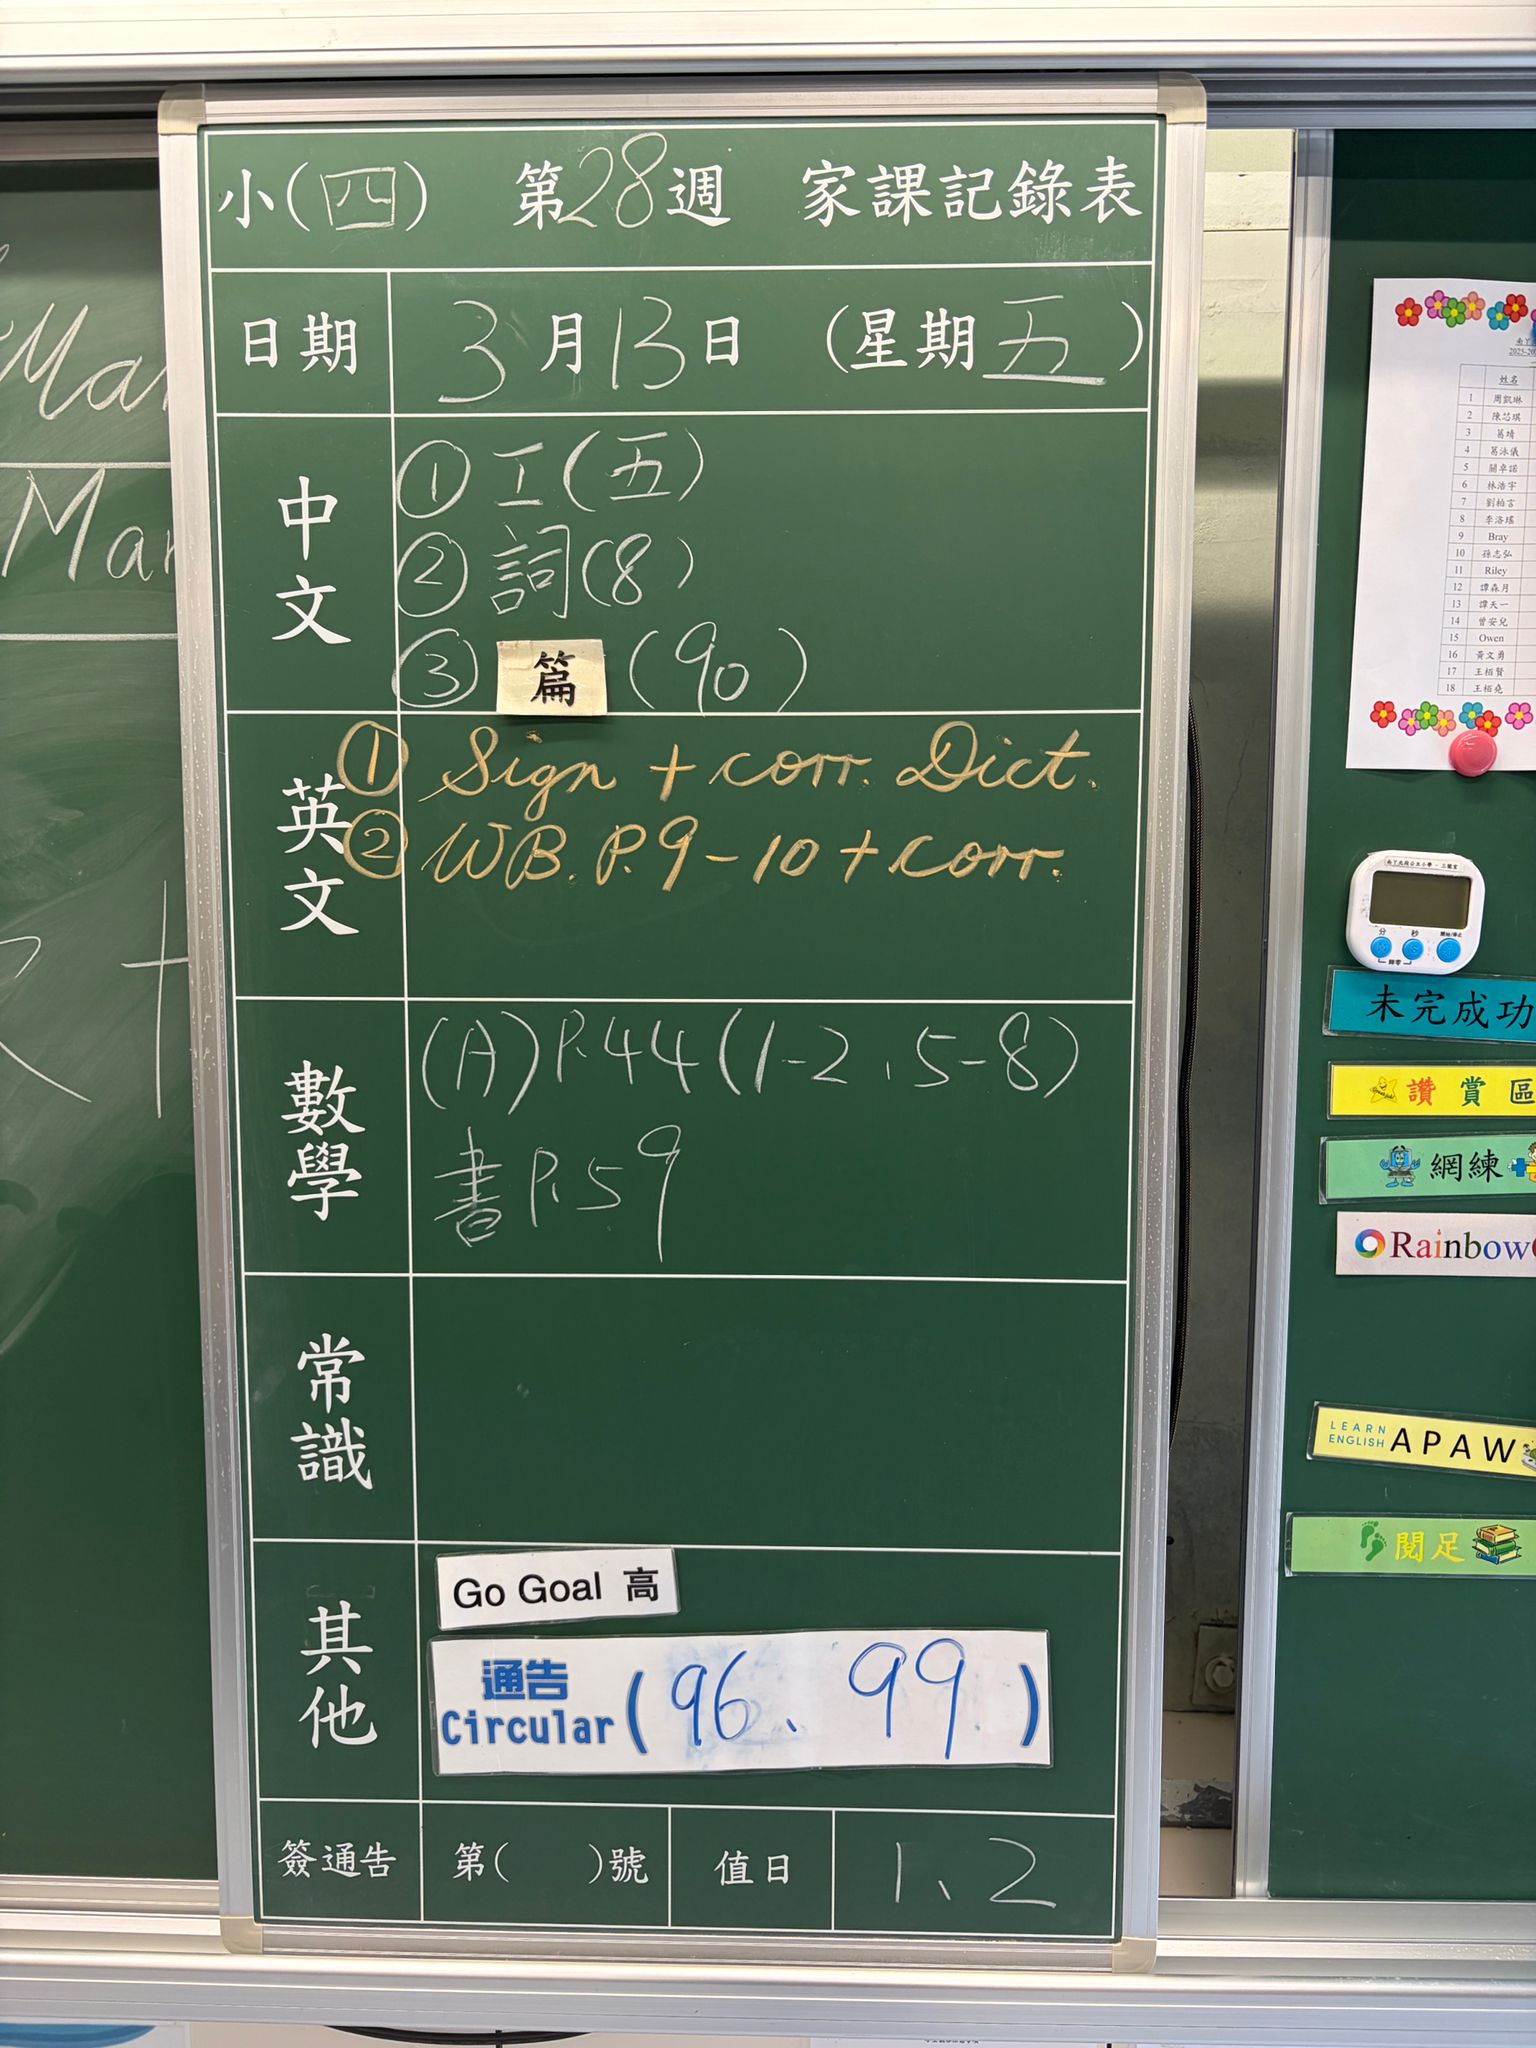 小(四) 第28週 家課記錄表
日期 3月13日 (星期五)
中文
① 工(五)
② 詞(8)
③ 篇(90)
英文
① Sign + corr. Dict.
② WB. P.9-10 + corr.
數學
(A)P.44(1-2、5-8)
書P.59
常識
其他
Go Goal 高
通告
Circular (96、99)
簽通告 第( )號 值日 1、2
Mar
Mar
2025-20
姓名
1 周凱琳
2 陳芯琪
3 葛晴
4 葛泳儀
5 關卓諾
6 林浩宇
7 劉柏言
8 李洛瑤
9 Bray
10 孫志弘
11 Riley
12 譚森月
13 譚天一
14 曾安兒
15 Owen
16 黃文勇
17 王栢賢
18 王栢堯
分 秒 開始/停止
歸零
未完成功
讚賞區
網練
Rainbow
LEARN
ENGLISH APAW
閱足